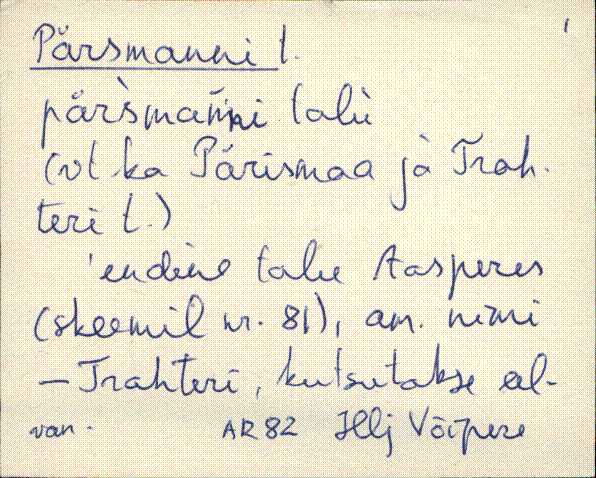 Pärsmanni t. 1
pär̀smańni talù
(vt ka Pärismaa jà Trah-
teri t.)
'endine talu Aasperes
(skeemil nr. 81), am. nimi
— Trahteri, kutsutakse al-
van. AR 82 Hlj Võipere